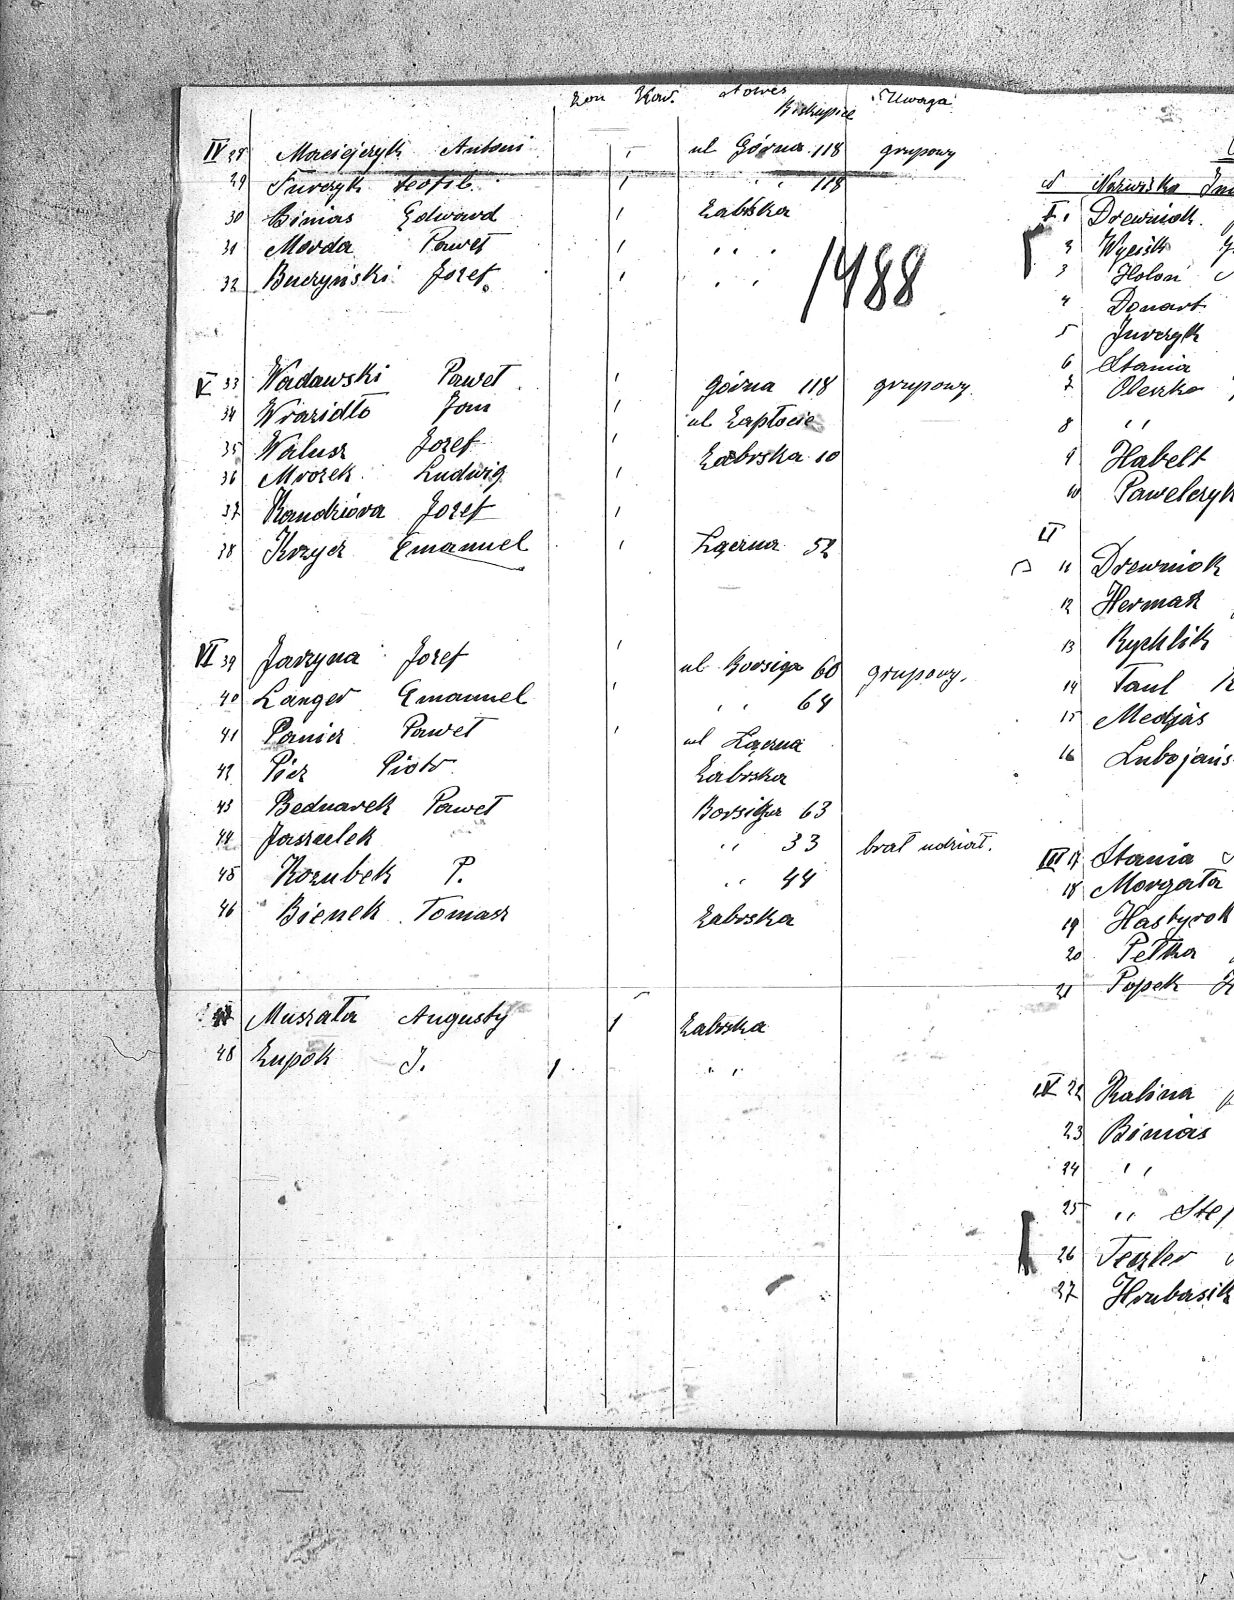 żon Kaw. Adres Biskupice Uwaga
IV 28 Maciejczyk Antoni ul Górna 118 grupowy
29 Jurczyk Teofil 1 " " 118
30 Binias Edward 1 Zabrska
31 Morda Paweł 1 " " "
32 Buczyński Jozef 1 " "
1488
V 33 Wadawski Paweł 1 górna 118 grupowy
34 Wrazidło Jan 1 ul Zapłocie
35 Walusz Jozef 1 Zabrska 10
36 Mrozek Ludwig 1
37 Kandziora Jozef 1
38 Krzycz Emanuel 1 Łączna 52
VI 39 Jarzyna Jozef 1 ul Borsiga 60 grupowy.
40 Langer Emanuel 1 " " 64
41 Panicz Paweł 1 ul Łączna
42 Picz Piotr Zabrska
43 Bednarek Paweł Borsiga 63
44 Jaszulek " 33 brał udział.
45 Kozubek P. " 44
46 Bienek Tomasz Zabrska
47 Muszała Augusty 1 Zabrska
48 Zupok J. 1 " "
Nazwisko
I 1 Drewniok
2 Wycisk
3 Holon
4 Donart
5 Jurczyk
6 Stania
7 Oleszko
8 " "
9 Habelt
10 Pawelczyk
II
11 Drewniok
12 Hermaz
13 Rychlik
14 Taul
15 Medjas
16 Lubojańs
III 17 Stania
18 Morgała
19 Hastyrok
20 Pełka
21 Popek
IV 22 Kalina
23 Binias
24 " "
25 " " Stef
26 Teszler
27 Hrubasik